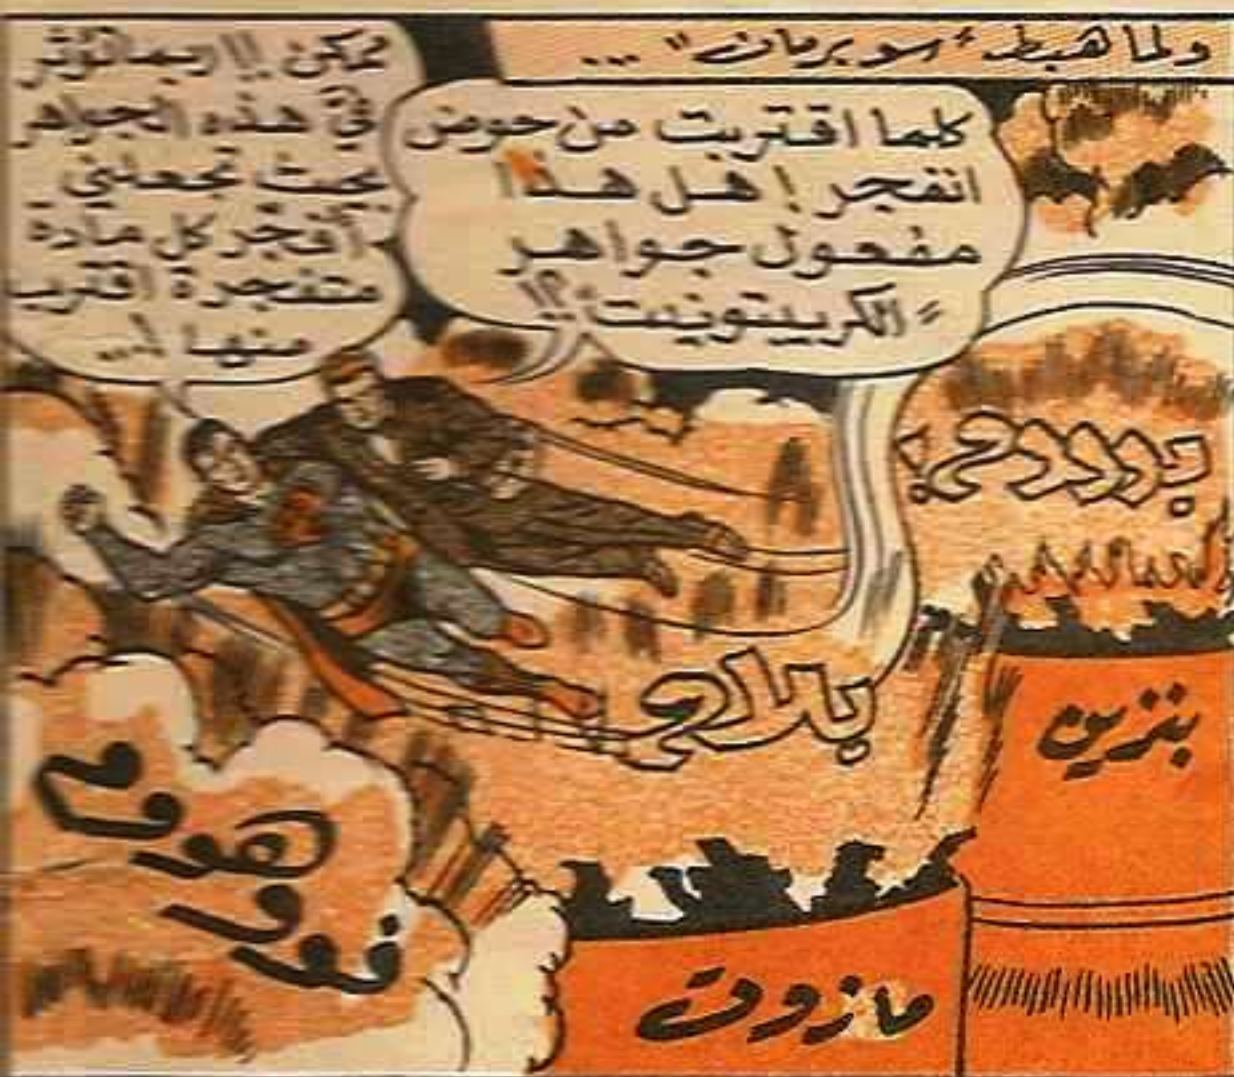 ولما هبط "سوبرمان" ...
كلما اقتربت من حوض
انفجر! هل هذا
مفعول جواهر
"الكريبتونيت"؟!
ممكن!! ربما تؤثر
فيّ هذه الجواهر
بحيث تجعلني
أفجّر كل مادة
متفجرة اقترب
منها!...
بررررم!
بلام
بنزين
مازوت